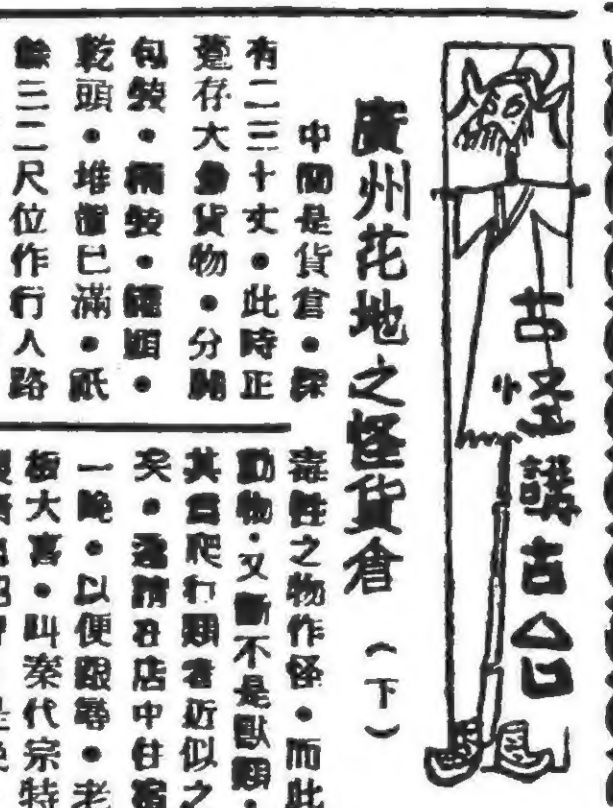 古怪講古台
廣州花地之怪貨倉（下）
中間是貨倉●深
有二三十丈●此時正
躉存大量貨物●分開
包裝●桶裝●罐頭●
乾頭●堆積已滿●祇
餘三二尺位作行人路
毒性之物作怪●而此
動物●又斷不是獸類●
其為爬行類者近似之
矣●遂請在店中住宿
一晚●以便跟尋●老
板大喜●叫秦代宗特